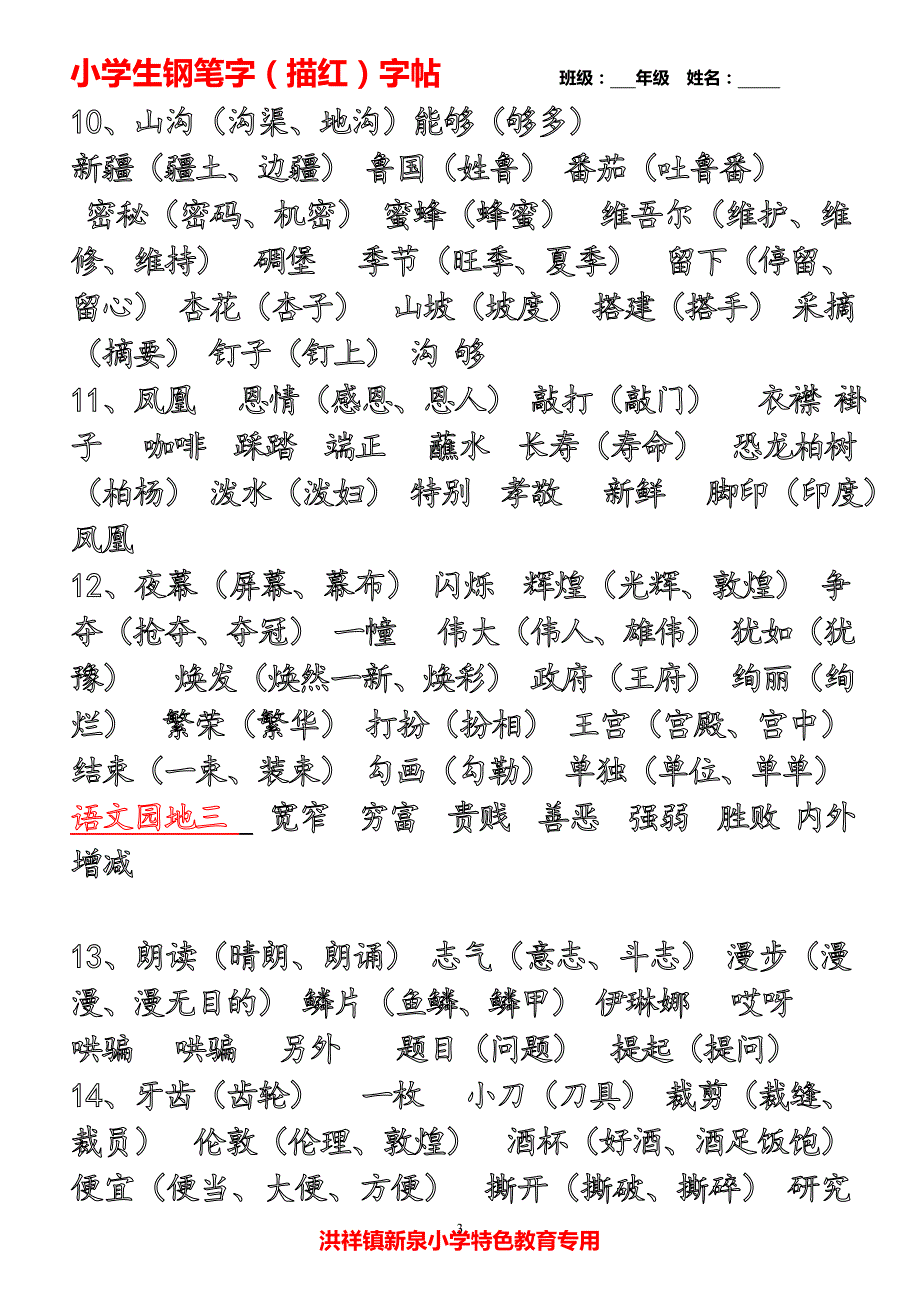 小学生钢笔字（描红）字帖 班级：___年级 姓名：_____
10、山沟（沟渠、地沟）能够（够多）
新疆（疆土、边疆） 鲁国（姓鲁） 番茄（吐鲁番）
密秘（密码、机密） 蜜蜂（蜂蜜） 维吾尔（维护、维
修、维持） 碉堡 季节（旺季、夏季） 留下（停留、
留心） 杏花（杏子） 山坡（坡度） 搭建（搭手） 采摘
（摘要） 钉子（钉上） 沟 够
11、凤凰 恩情（感恩、恩人） 敲打（敲门） 衣襟 褂
子 咖啡 踩踏 端正 蘸水 长寿（寿命） 恐龙柏树
（柏杨） 泼水（泼妇） 特别 孝敬 新鲜 脚印（印度）
凤凰
12、夜幕（屏幕、幕布） 闪烁 辉煌（光辉、敦煌） 争
夺（抢夺、夺冠） 一幢 伟大（伟人、雄伟） 犹如（犹
豫） 焕发（焕然一新、焕彩） 政府（王府） 绚丽（绚
烂） 繁荣（繁华） 打扮（扮相） 王宫（宫殿、宫中）
结束（一束、装束） 勾画（勾勒） 单独（单位、单单）
语文园地三 宽窄 穷富 贵贱 善恶 强弱 胜败 内外
增减
13、朗读（晴朗、朗诵） 志气（意志、斗志） 漫步（漫
漫、漫无目的） 鳞片（鱼鳞、鳞甲） 伊琳娜 哎呀
哄骗 哄骗 另外 题目（问题） 提起（提问）
14、牙齿（齿轮） 一枚 小刀（刀具） 裁剪（裁缝、
裁员） 伦敦（伦理、敦煌） 酒杯（好酒、酒足饭饱）
便宜（便当、大便、方便） 撕开（撕破、撕碎） 研究
3
洪祥镇新泉小学特色教育专用